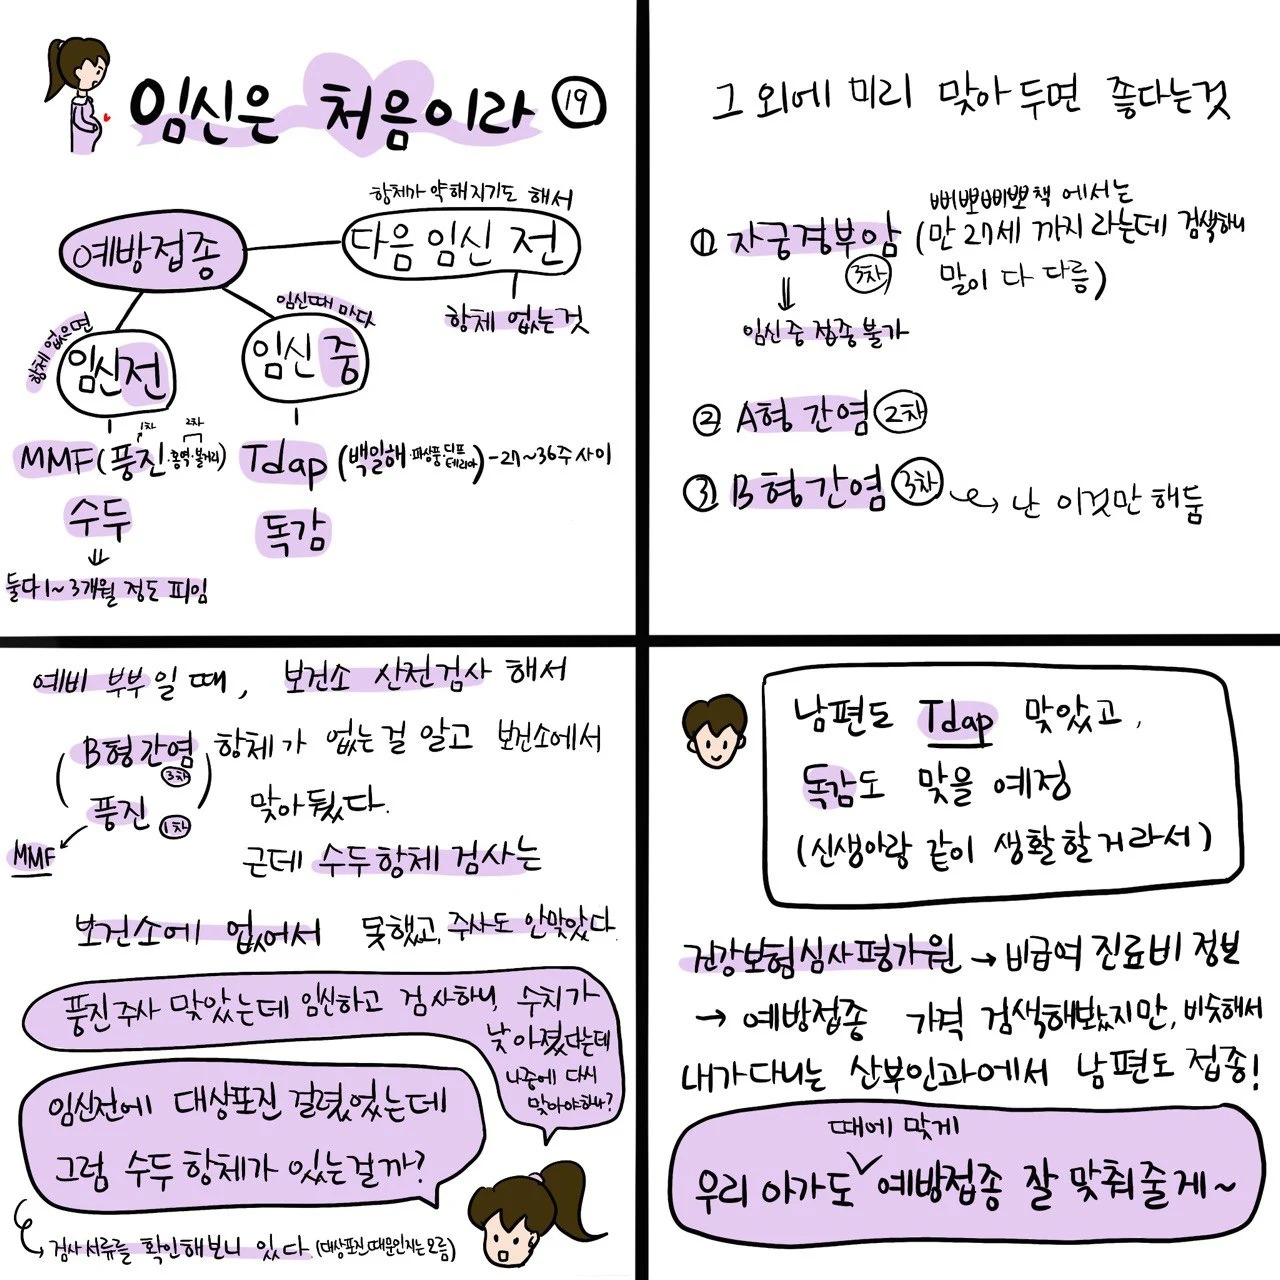 임신은 처음이라 19
항체가 약해지기도 해서
예방접종
다음 임신 전
항체 없는것
항체 없으면
임신전
임신때 마다
임신 중
MMF(풍진·홍역·볼거리)
1차
2차
수두
둘다 1~3개월 정도 피임
Tdap (백일해·파상풍·디프테리아) - 27~36주 사이
독감
그 외에 미리 맞아 두면 좋다는것
① 자궁경부암 3차 (삐뽀삐뽀책 에서는
만 27세 까지 라는데 검색하니
말이 다 다름)
임신 중 접종 불가
② A형 간염 2차
③ B형간염 3차 → 난 이것만 해둠
예비 부부일 때, 보건소 산전검사 해서
(B형간염 3차 항체가 없는걸 알고 보건소에서
풍진 1차) 맞아뒀다.
MMF
근데 수두항체 검사는
보건소에 없어서 못했고, 주사도 안맞았다.
풍진주사 맞았는데 임신하고 검사하니, 수치가
낮아졌다는데
나중에 다시
맞아야하나?
임신전에 대상포진 걸렸었는데
그럼 수두 항체가 있는걸까?
→ 검사 서류를 확인해보니 있다 (대상포진때문인지는 모름)
남편도 Tdap 맞았고,
독감도 맞을 예정
(신생아랑 같이 생활할거라서)
건강보험심사평가원 → 비급여 진료비 정보
→ 예방접종 가격 검색해봤지만, 비슷해서
내가 다니는 산부인과에서 남편도 접종!
때에 맞게
우리 아가도 ✓ 예방접종 잘 맞춰줄게~